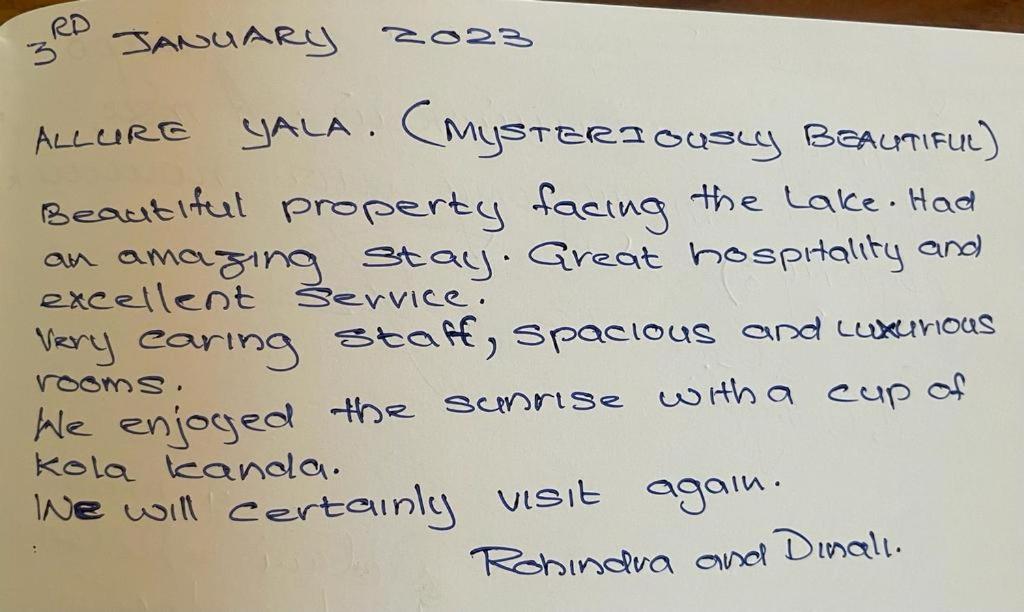 3RD JANUARY 2023
ALLURE YALA. (MYSTERIOUSLY BEAUTIFUL)
Beautiful property facing the Lake. Had
an amazing stay. Great hospitality and
excellent service.
Very caring staff, spacious and luxurious
rooms.
We enjoyed the sunrise with a cup of
Kola kanda.
We will certainly visit again.
Rohindra and Dinali.